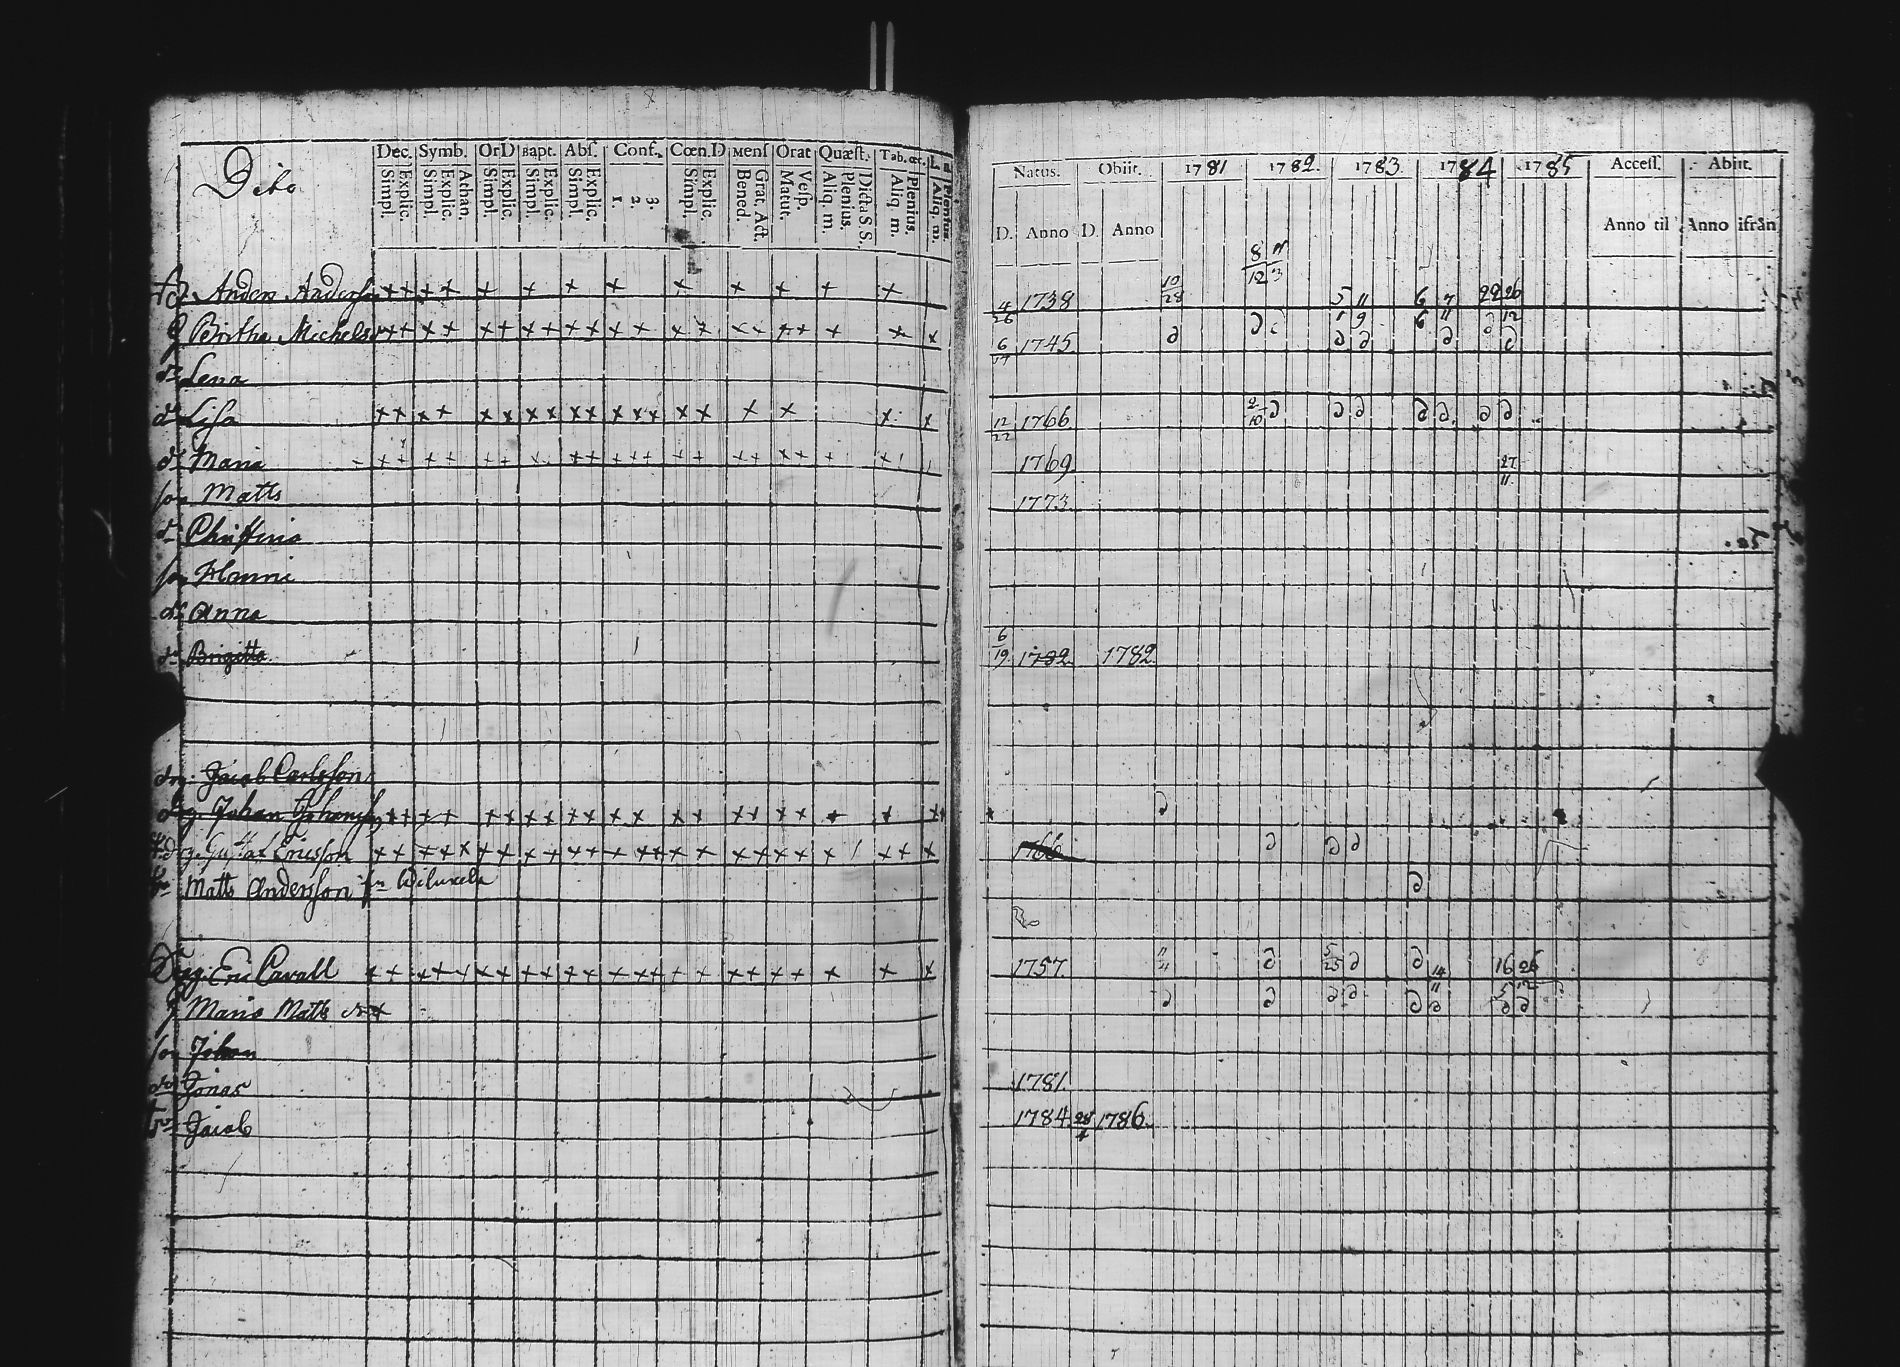 Dito
Dec. Symb. OrD Bapt. Abs. Conf. Cœn.D Mens Orat Quæst. Tab. œc.
Simpl. Explic. Simpl. Explic. Athan. Simpl. Explic. Simpl. Explic. Simpl. Explic. 1. 2. 3. Simpl. Explic. Bened. Grat. Act. Matut. Vesp. Aliq. m. Plenius. Dicta S. S. Aliq. m. Plenius. Aliq. m. Plenius
Natus. Obiit. 1781 1782. 1783. 1784 1785 Access. Abiit.
D. Anno D. Anno Anno til Anno ifrån
8 11
12 3
Anders Andersson ++ ++ + + + + + + + + + + 4/26 1738 10/28 5 11 6 7 22 26
Britha Michels ++ ++ ++ ++ ++ ++ + + ++ ++ + + + 6/17 1745 1 9 6 11 12
dr Lena
dr Lisa ++ ++ ++ ++ ++ +++ ++ + + + + 12/22 1766 2/10
dr Maria ++ ++ ++ ++ +++ ++ ++ ++ + + 1769 27/11
son Matts 1773
dr Christina
son Hanns
dr Anna
dr Brigitta 6/19 1782 1782
drg. Jacob Carlsson
drg. Johan Johansson ++ ++ ++ ++ ++ ++ ++ ++ ++ + + +
drg. Gustaf Ericsson ++ +++ ++ ++ ++ +++ ++ ++ ++ + ++ + 1766
Matts Andersson
Eric Cavall ++ +++ ++ ++ ++ +++ ++ ++ ++ + + + 1757 11/4 5/25 14 16 26
Maria Matts dr 11 5 12
son Johan
Jonas 1781
Jacob 1784 28/4 1786